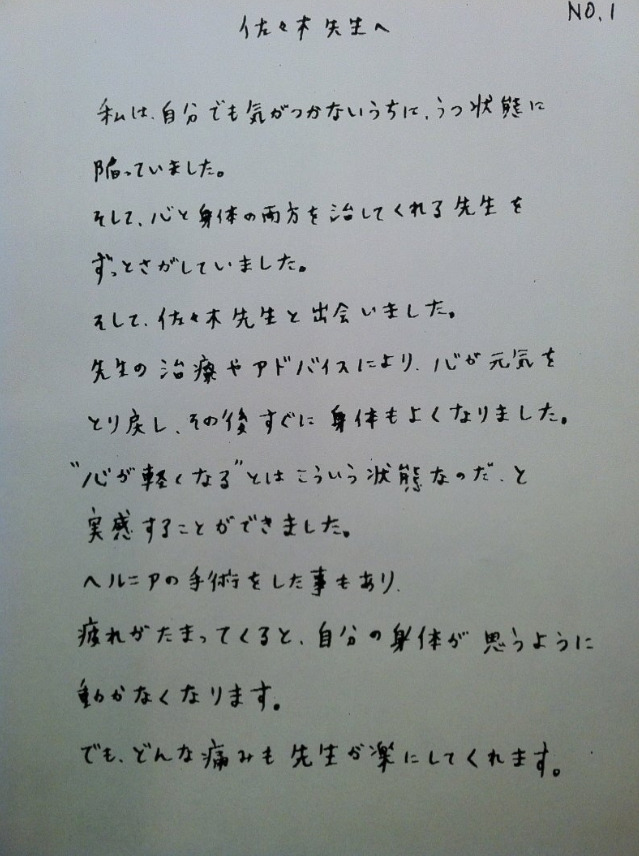 NO.1
佐々木先生へ
私は、自分でも気がつかないうちに、うつ状態に
陥っていました。
そして、心と身体の両方を治してくれる先生を
ずっとさがしていました。
そして、佐々木先生と出会いました。
先生の治療やアドバイスにより、心が元気を
とり戻し、その後すぐに身体もよくなりました。
"心が軽くなる"とはこういう状態なのだ、と
実感することができました。
ヘルニアの手術をした事もあり、
疲れがたまってくると、自分の身体が思うように
動かなくなります。
でも、どんな痛みも先生が楽にしてくれます。